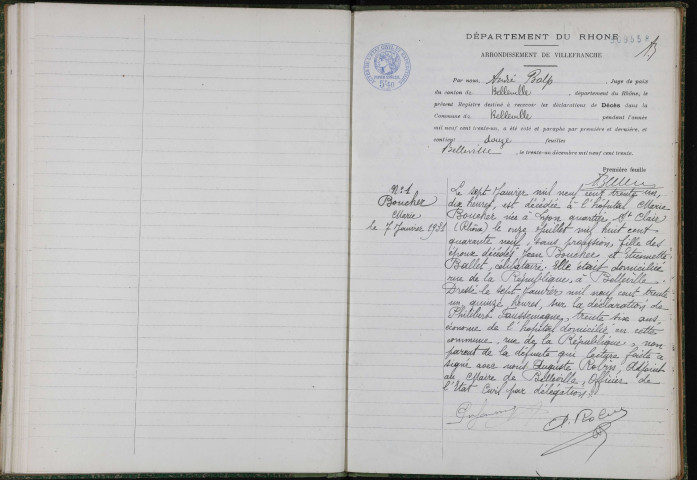 DÉPARTEMENT DU RHONE
ARRONDISSEMENT DE VILLEFRANCHE
Par nous, André , Juge de paix
du canton de Belleville , département du Rhône, le
présent Registre destiné à recevoir les déclarations de Décès dans la
Commune de Belleville pendant l'année
mil neuf cent trente-un, a été coté et paraphé par première et dernière, et
contient douze feuilles
Belleville , le trente-un décembre mil neuf cent trente.
Première feuille
N° 1
Boucher
Marie
le 7 Janvier 1931
Le sept Janvier mil neuf cent trente un,
dix heures, est décédée à l'hôpital Marie
Boucher née à Lyon quartier St Clair
(Rhône) le onze Juillet mil huit cent
quarante neuf, sans profession, fille des
époux décédés Jean Boucher et Etiennette
Ballet, célibataire. Elle était domiciliée
rue de la République, à Belleville.
Dressé le sept Janvier mil neuf cent trente
un, quinze heures, sur la déclaration de
Philibert trente six ans
économe de l'hôpital domicilié en cette
commune, rue de la République, non
parent de la défunte qui lecture faite a
signé avec nous Auguste Robin, Adjoint
au Maire de Belleville, Officier de
l'Etat Civil par délégation.
A. Robin